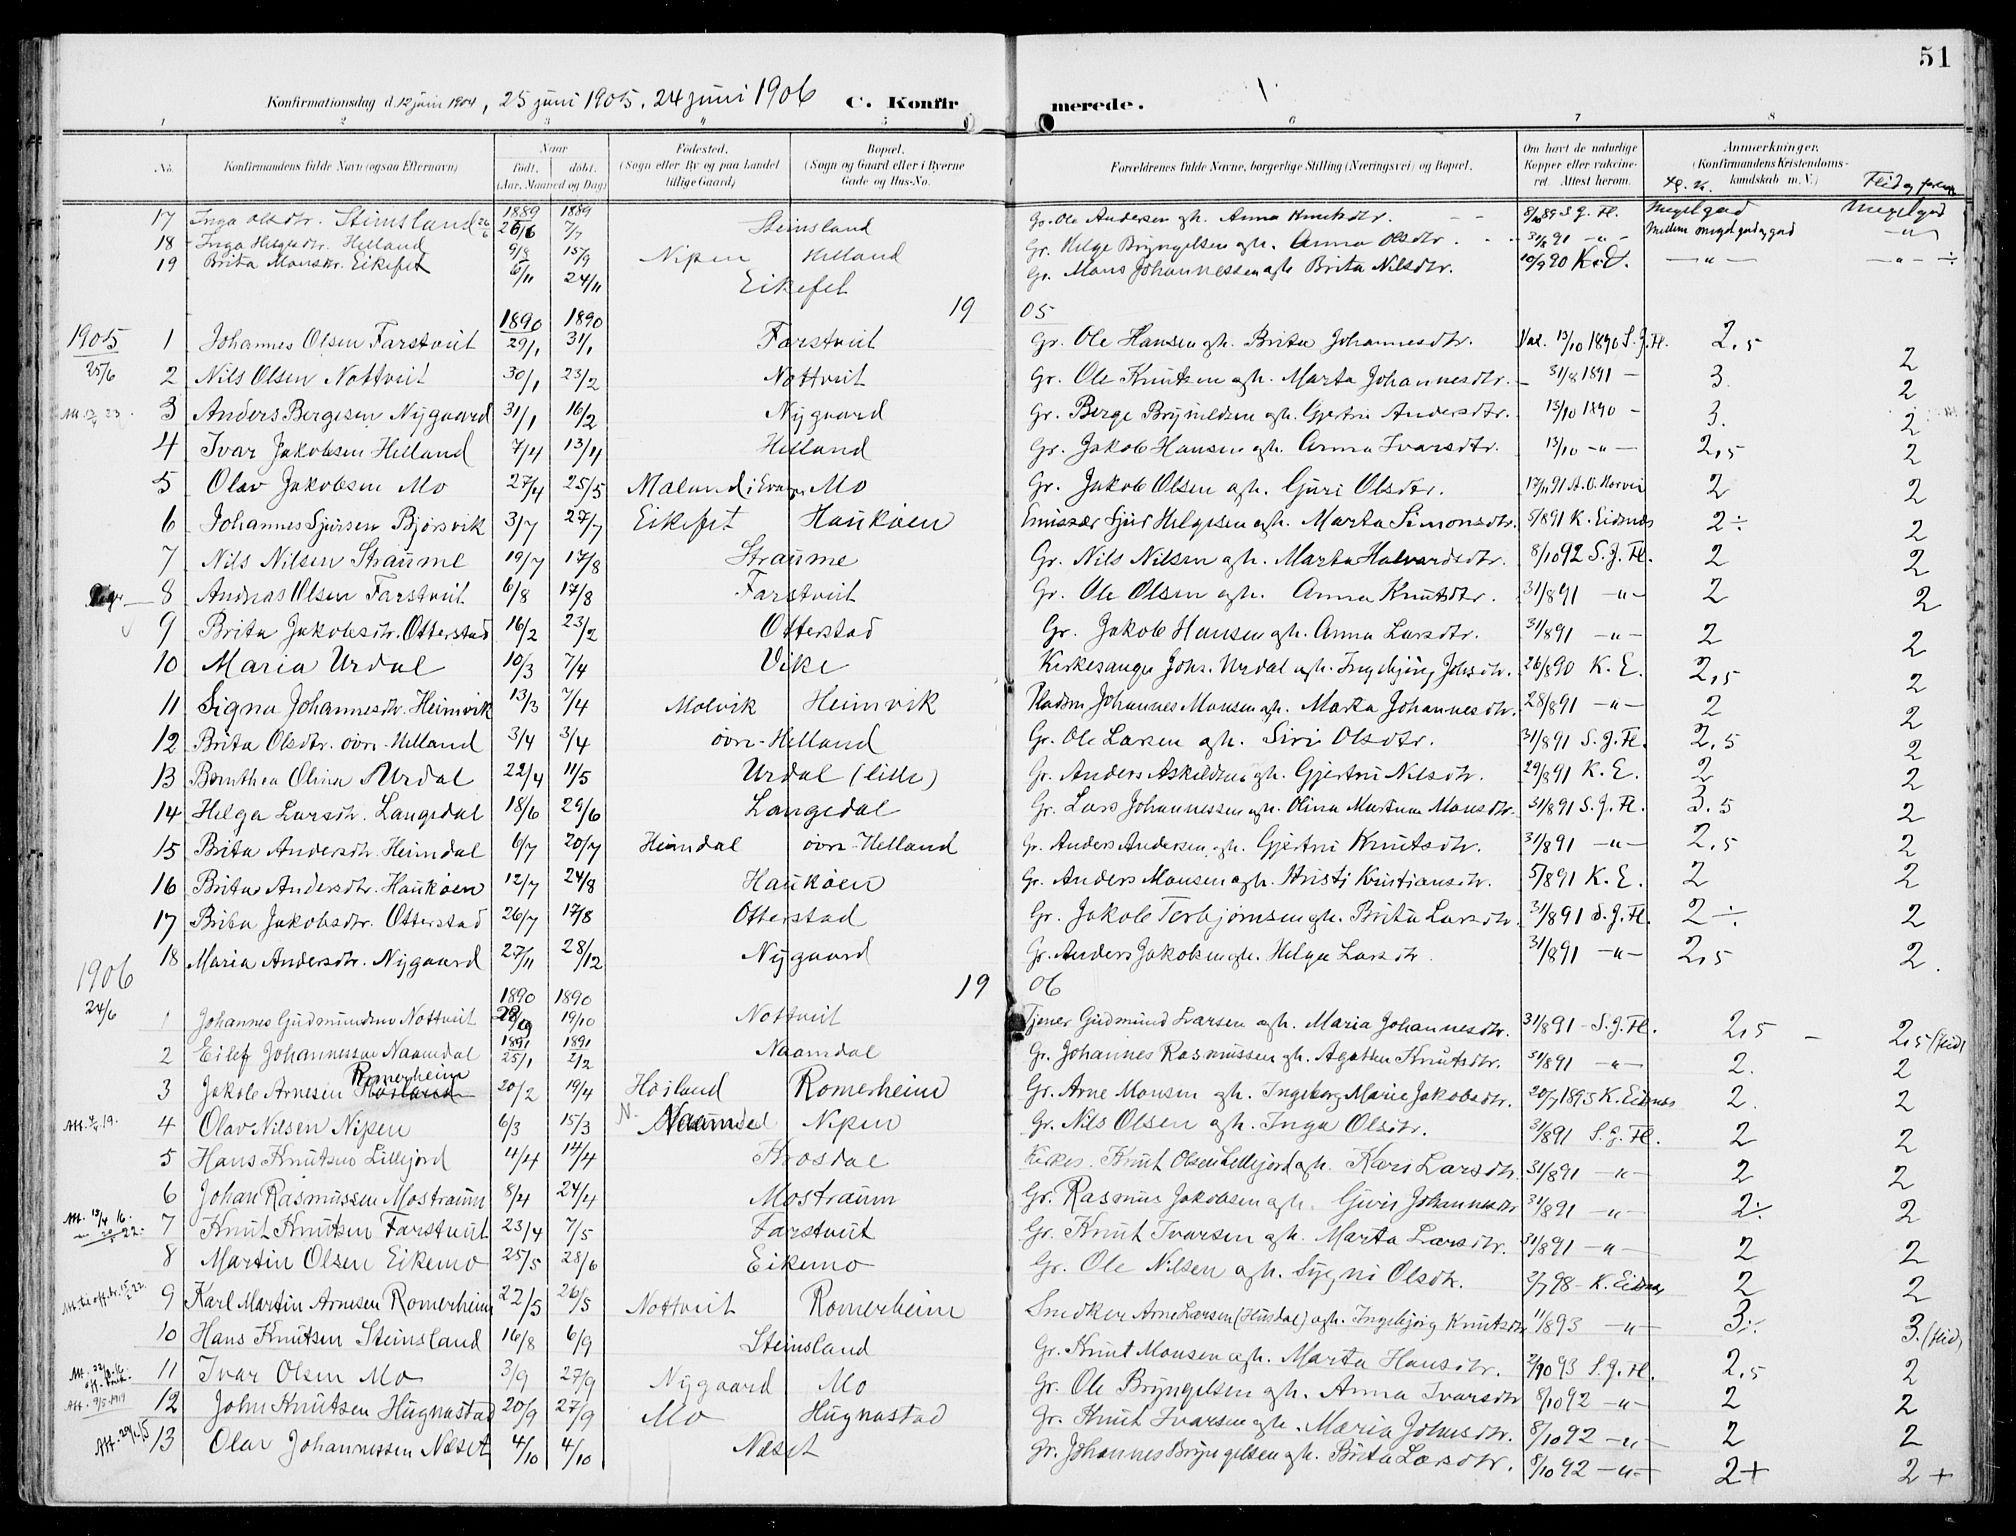 51
Konfirmationsdag d. 12 juni 1904, 25 juni 1905, 24 juni 1906 C. Konfirmerede.
1 2 3 4 5 6 7 8
No. Konfirmandens fulde Navn (ogsaa Efternavn) Naar født. døbt. (Aar, Maaned og Dag) Fødested. (Sogn eller By og paa Landet tillige Gaard) Bopæl. (Sogn og Gaard eller i Byerne Gade og Hus-No. Forældrenes fulde Navne, borgerlige Stilling (Næringsvei) og Bopæl. Om havt de naturlige Kopper eller vakcineret. Attest herom. Anmærkninger. (Konfirmandens Kristendomskundskab m. V.)
1889 1889
17 Inga Olsdtr. Steinsland 26/6 7/7 Steinsland Gr. Ole Andersen gh. Anna Knutsdtr. 8/10 89 S. J. Fl. Megetgod Megetgod
18 Inga Helgesdtr. Helland 9/8 15/9 Nipen Helland Gr. Helge Bryngelsen gh. Anna Olsdtr. 31/8 91 -"- Mellem megetgod og god -"-
19 Brita Monsdtr. Eikefet 6/11 24/11 Eikefet Gr. Mons Johannessen gh. Brita Nilsdtr. 10/9 90 K. E. -"- -"- ÷
1905
1890 1890
1905 25/6 1 Johannes Olsen Farstveit 29/1 31/1 Farstveit Gr. Ole Hansen gh. Brita Johannesdtr. Vac. 13/10 1890 S. J. Fl. 2,5 2
2 Nils Olsen Nottveit 30/1 23/2 Nottveit Gr. Ole Knutsen gh. Marta Johannesdtr. - 31/8 1891 - 3. 2
3 Anders Bergesen Nygaard 31/1 16/2 Nygaard Gr. Berge Brynildsen gh. Gjertru Andersdtr. 13/10 1890 - 3. 2
4 Ivar Jakobsen Helland 7/4 13/4 Helland Gr. Jakob Hansen gh. Anna Ivarsdtr. 13/10 -"- 2,5 2
5 Olav Jakobsen Mo 27/4 25/5 Maland i Evang. Mo Gr. Jakob Olsen gh. Guri Olsdtr. 17/11 91 A. O. Norvei 2 2
6 Johannes Sjursen Bjørsvik 3/7 27/7 Eikefet Haukøen Emissær Sjur Helgesen gh. Marta Simonsdtr. 5/8 91 K. Eidnes 2÷ 2
7 Nils Nilsen Straume 19/7 17/8 Straume Gr. Nils Nilsen gh. Marta Halvardsdtr. 8/10 92 S. J. Fl. 2 2
8 Andreas Olsen Farstveit 6/8 17/8 Farstveit Gr. Ole Olsen gh. Anna Knutsdtr. 31/8 91 -"- 2 2
9 Brita Jakobsdtr. Otterstad 16/2 23/2 Otterstad Gr. Jakob Hansen gh. Anna Larsdtr. 31/8 91 -"- 2 2
10 Maria Urdal 10/3 7/4 Vike Kirkesanger Johs. Urdal gh. Ingebjørg Johsdtr. 26/8 90 K. E. 2,5 2
11 Signa Johannesdtr. Heimvik 13/3 7/4 Molvik Heimvik Pladsm. Johannes Monsen gh. Marta Johannesdtr. 28/8 91 -"- 2 2
12 Brita Olsdtr. øvre-Helland 3/4 3/4 øvre-Helland Gr. Ole Larsen gh. Siri Olsdtr. 31/8 91 S. J. Fl. 2,5 2
13 Bernthea Olina Urdal 22/4 11/5 Urdal (lille) Gr. Anders Askildsen gh. Gjertru Nilsdtr. 29/8 91 K. E. 2 2
14 Helga Larsdtr. Langedal 18/6 29/6 Langedal Gr. Lars Johannessen gh. Olina Martina Monsdtr. 31/8 91 S. J. Fl. 3.5 2
15 Brita Andersdtr. Heimdal 6/7 20/7 Heimdal øvre-Helland Gr. Anders Andersen gh. Gjertru Knutsdtr. 31/8 91 -"- 2,5 2
16 Brita Andersdtr. Haukøen 12/7 24/8 Haukøen Gr. Anders Monsen gh. Kristi Kristiansdtr. 5/8 91 K. E. 2 2
17 Brita Jakobsdtr. Otterstad 26/7 17/8 Otterstad Gr. Jakob Terbjørnsen gh. Brita Larsdtr. 31/8 91 S. J. Fl. 2÷ 2
18 Maria Andersdtr. Nygaard 27/11 28/12 Nygaard Gr. Anders Jakobsen gh. Helga Larsdtr. 31/8 91 -"- 2,5 2.
1906 24/6
1906
1890 1890
1 Johannes Gudmundsen Nottveit 19/10 Nottveit Tjener Gudmund Larsen gh. Maria Johannesdtr. 31/8 91 - S. J. Fl. 2,5 - 2,5 (flid)
1891 1891
2 Eilef Johannessen Naamdal 25/1 2/2 Naamdal Gr. Johannes Rasmussen gh. Agathe Knutsdtr. 31/8 91 -"- 2. 2
3 Jakob Arnesen Romerheim 20/2 19/4 Høiland Romerheim Gr. Arne Monsen gh. Ingeborg Marie Jakobsdtr. 20/7 1895 K. Eidnes 2. 2
4 Olav Nilsen Nipen 6/3 15/3 Nipen Gr. Nils Olsen gh. Inga Olsdtr. 31/8 91 S. J. Fl. 2 2
5 Hans Knutsen Lillejord 4/4 12/4 Krosdal Kirkes. Knut Olsen Lillejord gh. Kari Larsdtr. 31/8 91 -"- 2 2
6 Johan Rasmussen Mostraum 8/4 24/4 Mostraum Gr. Rasmus Jakobsen gh. Guri Johannesdtr 31/8 91 -"- 2÷ 2
7 Knut Knutsen Farstveit 23/4 7/5 Farstveit Gr. Knut Ivarsen gh. Marta Larsdtr. 31/8 91 -"- 2 2
8 Martin Olsen Eikemo 25/5 28/6 Eikemo Gr. Ole Nilsen gh. Sygni Olsdtr. 2/7 98 - K. Eidnes 2 2
9 Karl Martin Arnesen Romerheim 22/5 26/5 Nottveit Romerheim Snedker Arne Larsen (Husdal) gh. Ingebjørg Knutsdtr 11/8 93 -"- 3÷. 3. (flid)
10 Hans Knutsen Steinsland 16/8 6/9 Steinsland Gr. Knut Monsen gh. Marta Hansdtr. 2/10 93 S. J. Fl. 2,5 2
11 Ivar Olsen Mo 3/9 27/9 Nygaard Mo Gr. Ole Bryngelsen gh. Anna Ivarsdtr 8/10 92 -"- 2 2
12 John Knutsen Hugnastad 20/9 27/9 Mo Hugnastad Gr. Knut Ivarsen gh. Maria Johnsdtr. 8/10 92 -"- 2 2
13 Olav Johannessen Næset 4/10 4/10 Næset Gr. Johannes Bryngelsen gh. Brita Larsdtr. 8/10 92 -"- 2+ 2+